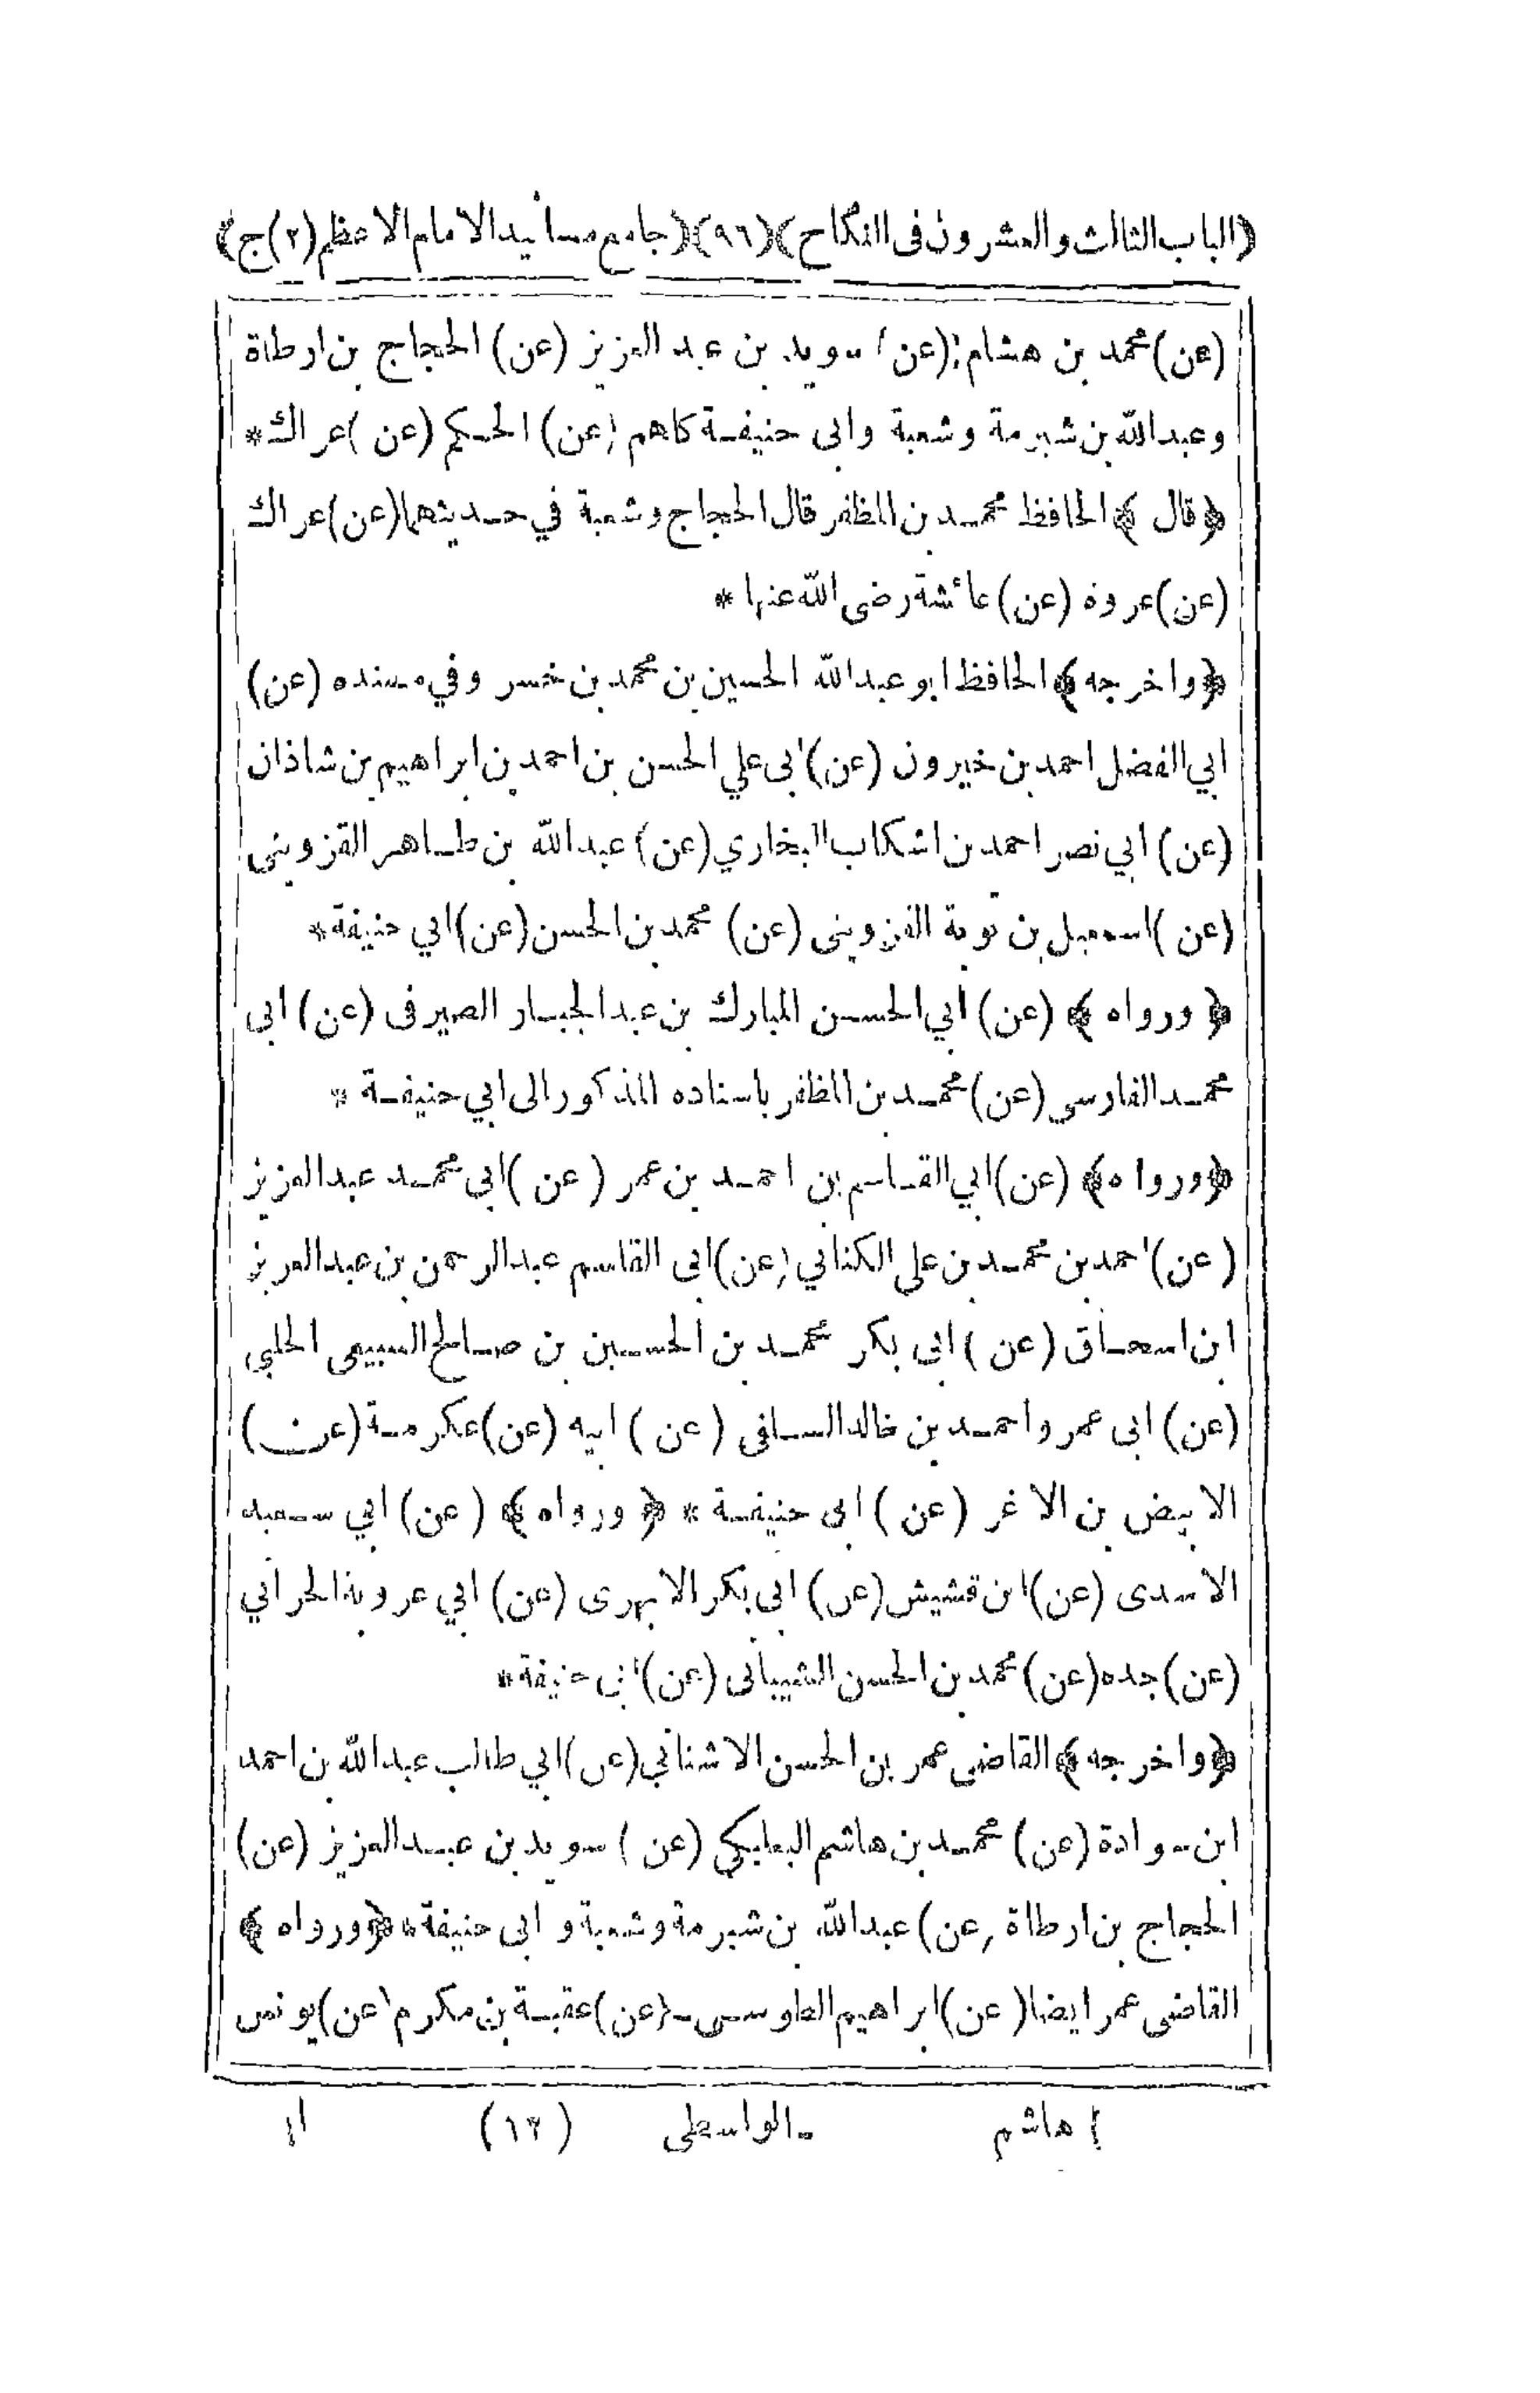 ﴿الباب الثالث والعشرون فى النكاح﴾(٩٦)﴿جامع مسانيد الامام الاعظم(٢)ج﴾
(عن)محمد بن هشام (عن) سويد بن عبد العزيز (عن) الحجاج بن ارطاة
وعبدالله بن شبرمة وشعبة وابى حنيفة كلهم (عن) الحكم (عن )عراك*
﴿قال ﴾ الحافظ محمد بن المظفر قال الحجاج وشعبة في حديثهما(عن)عراك
(عن)عروة (عن)عائشة رضى الله عنها *
﴿واخرجه﴾ الحافظ ابو عبدالله الحسين بن محمد بن خسر وفي مسنده (عن)
ابي الفضل احمد بن خيرون (عن)ابى علي الحسن بن احمد بن ابراهيم بن شاذان
(عن) ابي نصر احمد بن اشكاب البخاري(عن) عبدالله بن طاهر القزوينى
(عن )اسمعيل بن توبة القزوينى (عن) محمد بن الحسن(عن)ابي حنيفة*
﴿ ورواه ﴾ (عن) ابي الحسن المبارك بن عبد الجبار الصيرفى (عن) ابى
محمد الفارسي (عن)محمد بن المظفر باسناده المذكور الى ابي حنيفة *
﴿ورواه﴾ (عن)ابي القاسم بن احمد بن عمر ( عن )ابى محمد عبدالعزيز
( عن)احمد بن محمد بن على الكناني (عن)ابى القاسم عبدالرحمن بن عبدالعزيز
ابن اسحاق (عن ) ابى بكر محمد بن الحسين بن صالح السبيعى الحلبي
(عن) ابى عمر واحمد بن خالد السلفى ( عن ) ابيه (عن)عكرمة(عن)
الابيض بن الاغر (عن ) ابى حنيفة * ﴿ ورواه﴾ ( عن) ابي سعيد
الاسدى (عن)ابن قشيش(عن) ابى بكر الابهرى (عن) ابي عروبة الحراني
(عن)جده(عن)محمد بن الحسن الشيبانى (عن)ابى حنيفة*
﴿واخرجه﴾ القاضى عمر بن الحسن الاشناني(عن)ابي طالب عبدالله بن احمد
ابن سوادة (عن) محمد بن هاشم البعلبكي (عن ) سويد بن عبدالعزيز (عن)
الحجاج بن ارطاة (عن) عبدالله بن شبرمة وشعبة و ابى حنيفة*﴿ورواه ﴾
القاضى عمر ايضا( عن)ابراهيم الطوسى (عن)عقبة بن مكرم (عن)يونس
هاشم الواسطى (١٢)